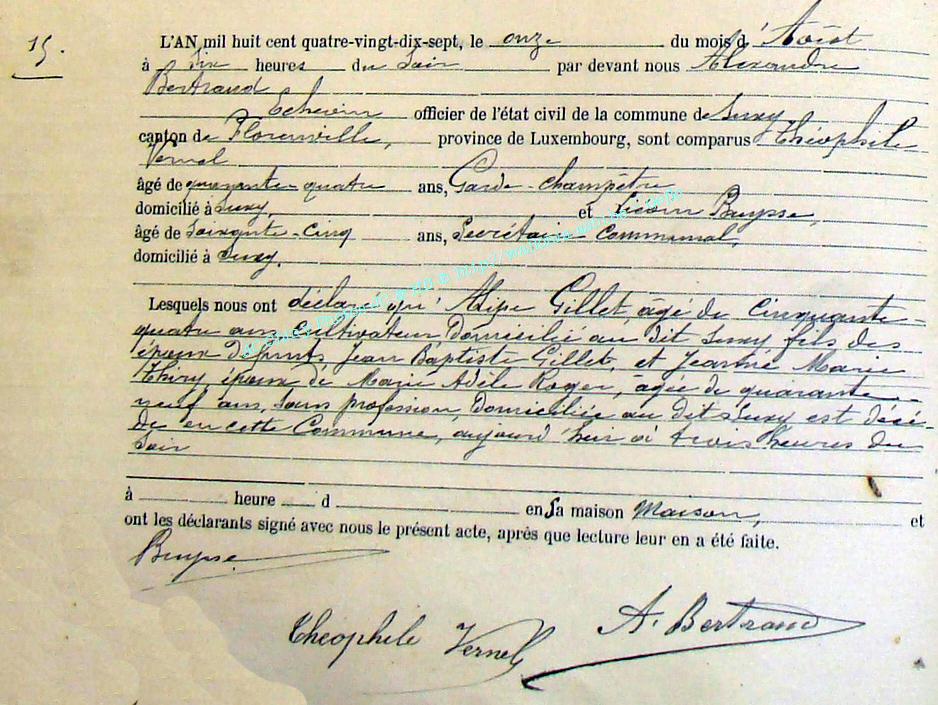 15.
L'AN mil huit cent quatre-vingt-dix-sept, le onze du mois d'Août
à six heures du soir par devant nous Alexandre
Bertrand
Echevin officier de l'état civil de la commune de Suxy
canton de Florenville, province de Luxembourg, sont comparus Théophile
Vernel
âgé de quarante-quatre ans, Garde-champêtre
domicilié à Suxy, et Buysse,
âgé de soixante-cinq ans, Secrétaire communal,
domicilié à Suxy.
Lesquels nous ont déclaré qu' Gillet, âgé de Cinquante
quatre ans cultivateur Domicilié au dit Suxy fils des
époux Défunts Jean Baptiste Gillet, et Jeanne Marie
Thiry, époux de Marie Adèle Roger, agée de quarante
neuf ans, sans profession, Domiciliée au Dit Suxy est décé-
dé en cette Commune, aujourd'hui à trois heures du
soir
à heure d en sa maison Maison, et
ont les déclarants signé avec nous le présent acte, après que lecture leur en a été faite.
Buysse
Théophile Vernel A. Bertrand